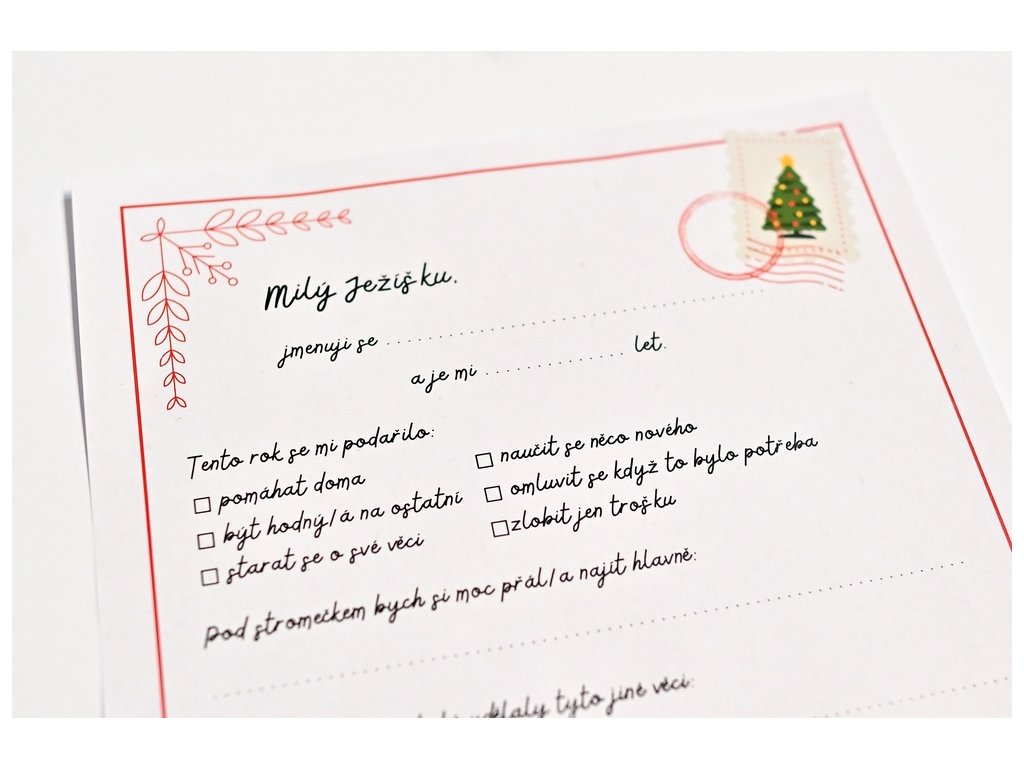 Milý Ježíšku,
jmenuji se ........................................
a je mi ................ let.
Tento rok se mi podařilo:
□ pomáhat doma
□ být hodný/á na ostatní
□ starat se o své věci
□ naučit se něco nového
□ omluvit se když to bylo potřeba
□ zlobit jen trošku
Pod stromečkem bych si moc přál/a najít hlavně:
udělaly tyto jiné věci: